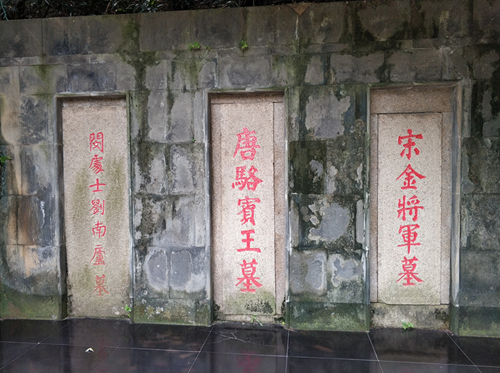 宋金將軍墓
唐駱賓王墓
閩處士劉南廬墓